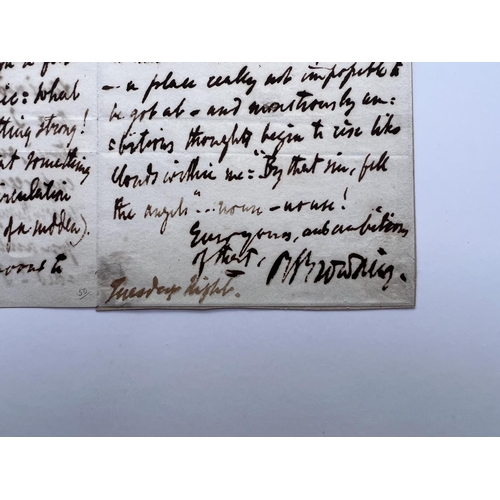 ic: What
tting strong!
at something
irculation
of a sudden).
— a place really not impossible to
be got at — and monstrously am:
:bitious thoughts begin to rise like
clouds within me: "By that sin, fell
the angels" ... — nouse!
Ever yours, and ambitious
of that,
RBrowning.
Tuesday Night.